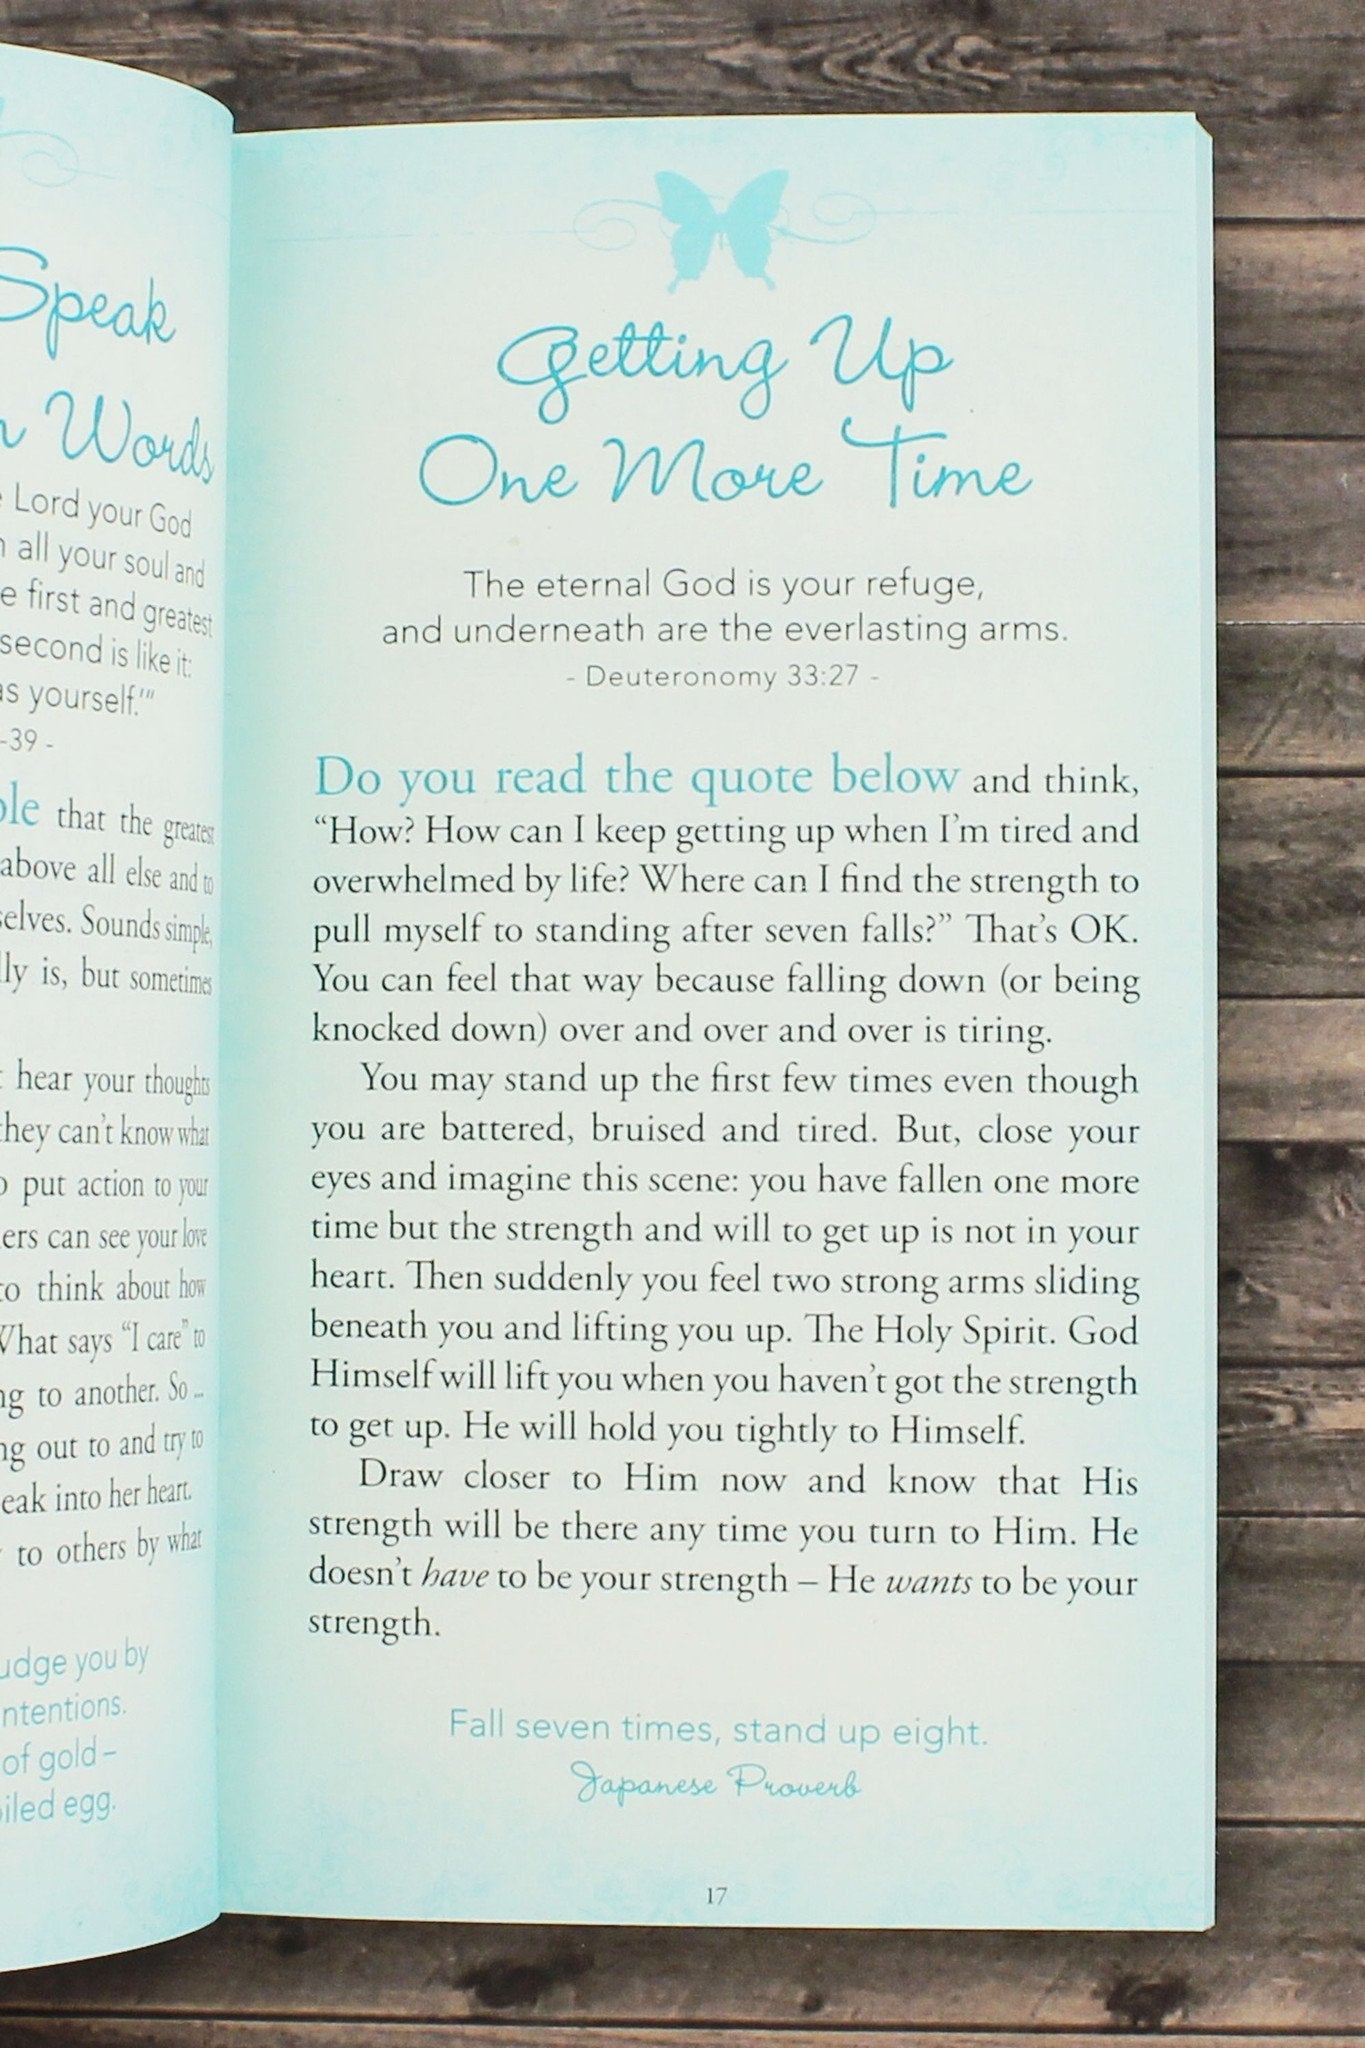 Speak
Words
Lord your God
all your soul and
first and greatest
second is like it:
as yourself.’”
-39 -
that the greatest
above all else and to
selves. Sounds simple,
is, but sometimes
hear your thoughts
they can’t know what
put action to your
can see your love
to think about how
What says “I care” to
to another. So ...
out to and try to
into her heart.
to others by what
you by
intentions.
of gold–
egg.
Getting Up
One More Time
The eternal God is your refuge,
and underneath are the everlasting arms.
- Deuteronomy 33:27 -
Do you read the quote below and think,
“How? How can I keep getting up when I’m tired and
overwhelmed by life? Where can I find the strength to
pull myself to standing after seven falls?” That’s OK.
You can feel that way because falling down (or being
knocked down) over and over and over is tiring.
You may stand up the first few times even though
you are battered, bruised and tired. But, close your
eyes and imagine this scene: you have fallen one more
time but the strength and will to get up is not in your
heart. Then suddenly you feel two strong arms sliding
beneath you and lifting you up. The Holy Spirit. God
Himself will lift you when you haven’t got the strength
to get up. He will hold you tightly to Himself.
Draw closer to Him now and know that His
strength will be there any time you turn to Him. He
doesn’t have to be your strength – He wants to be your
strength.
Fall seven times, stand up eight.
Japanese Proverb
17